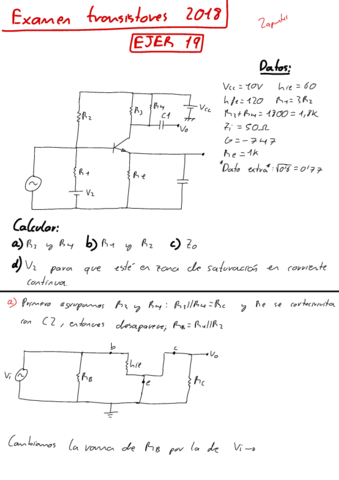 Examen transistores 2018
EJER 19
Datos:
Vcc = 10V hie = 60
hfe = 120 R1 = 3R2
R3 + R4 = 1800 = 1,8K
Zi = 50Ω
G = -747
Re = 1K
"Dato extra": √0'6 = 0'77
R2
R3
R4
C1
Vcc
Vo
R1
V2
Re
Calcular:
a) R3 y R4 b) R1 y R2 c) Zo
d) V2 para que esté en zona de saturación en corriente
continua.
a) Primero agrupamos R3 y R4: R3//R4 = Rc y Re se cortocircuita
con C2, entonces desaparece; RB = R1//R2
b
c
Vo
Vi
RB
hie
e
Rc
Cambiamos la rama de RB por la de Vi →